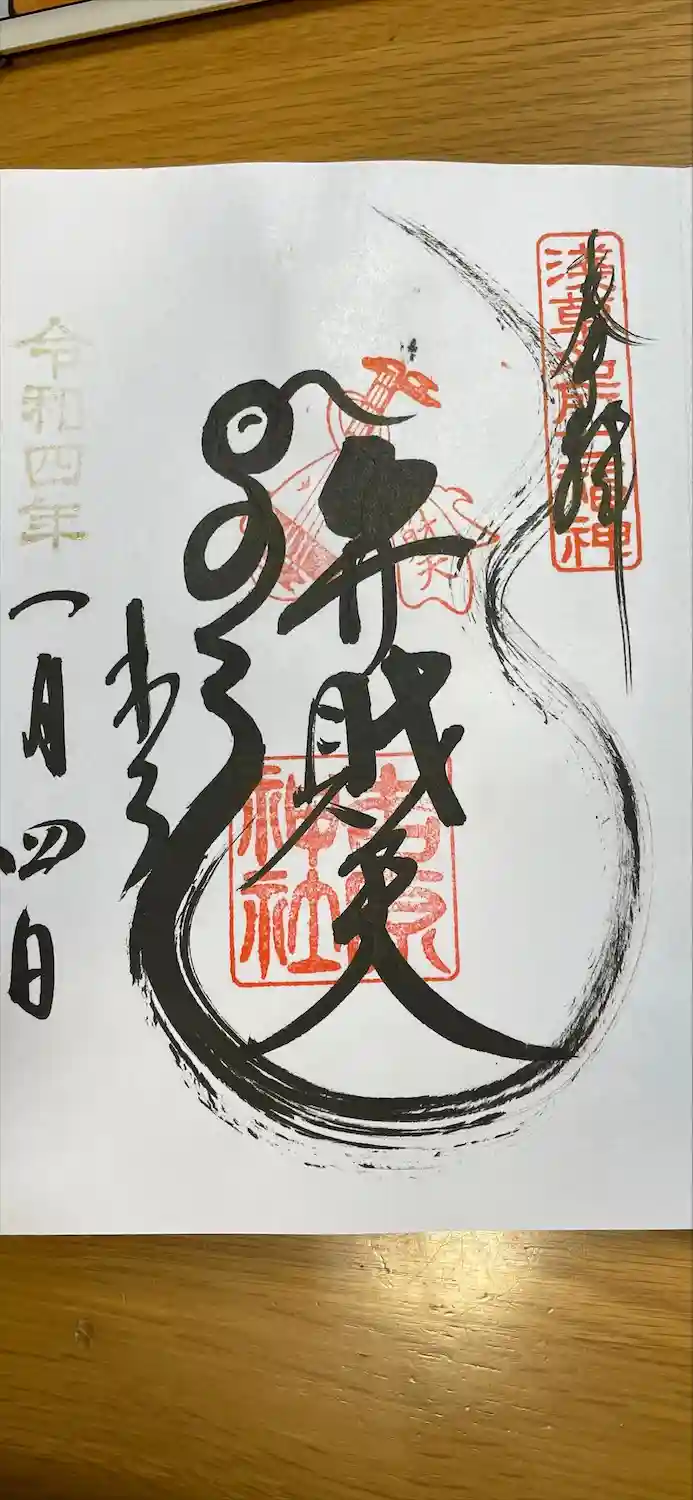 奉拝
浅草名所七福神
弁財天
吉原神社
令和四年
一月四日